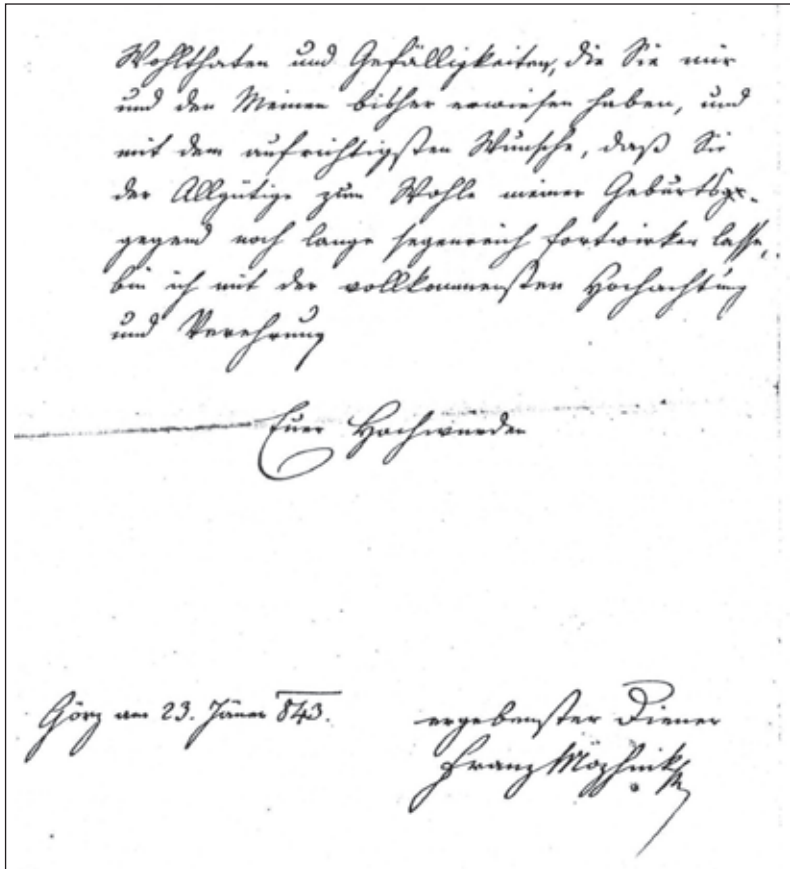 Wohlthaten und Gefälligkeiten, die Sie mir
und den Meinen bisher erwiesen haben, und
mit dem aufrichtigsten Wunsche, daß Sie
der Allgütige zum Wohle meiner Geburts-
gegend noch lange segenreich fortwirken lasse,
bin ich mit der vollkommensten Hochachtung
und Verehrung
Euer Hochwürden
Görz am 23. Jäner 843.
ergebenster Diener
Franz Močhnik